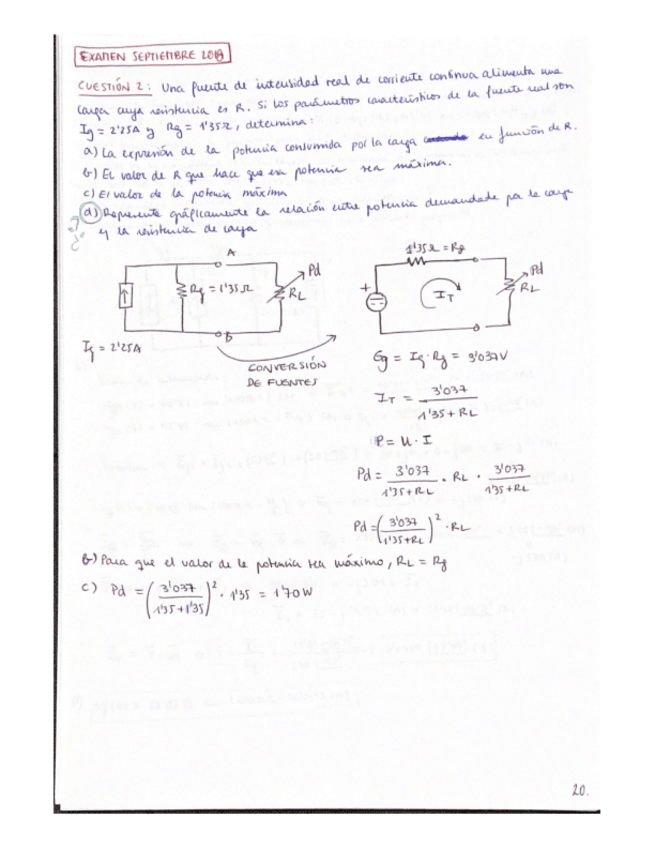 EXAMEN SEPTIEMBRE 2018
CUESTIÓN 2: Una fuente de intensidad real de corriente continua alimenta una
carga cuya resistencia es R. Si los parámetros característicos de la fuente real son
Ig = 2'25A y Rg = 1'35Ω, determina:
a) La expresión de la potencia consumida por la carga en función de R.
b) El valor de R que hace que esa potencia sea máxima.
c) El valor de la potencia máxima
d) Represente gráficamente la relación entre potencia demandada por la carga
y la resistencia de carga
A
Pd
Rg = 1'35Ω
RL
B
Ig = 2'25A
CONVERSIÓN
DE FUENTES
1'35Ω = Rg
Pd
RL
+
IT
Eg = Ig · Rg = 3'037V
IT = 3'037 / 1'35 + RL
P = U · I
Pd = 3'037 / 1'35 + RL · RL · 3'037 / 1'35 + RL
Pd = (3'037 / 1'35 + RL)² · RL
b) Para que el valor de la potencia sea máximo, RL = Rg
c) Pd = (3'037 / 1'35 + 1'35)² · 1'35 = 1'70W
20.